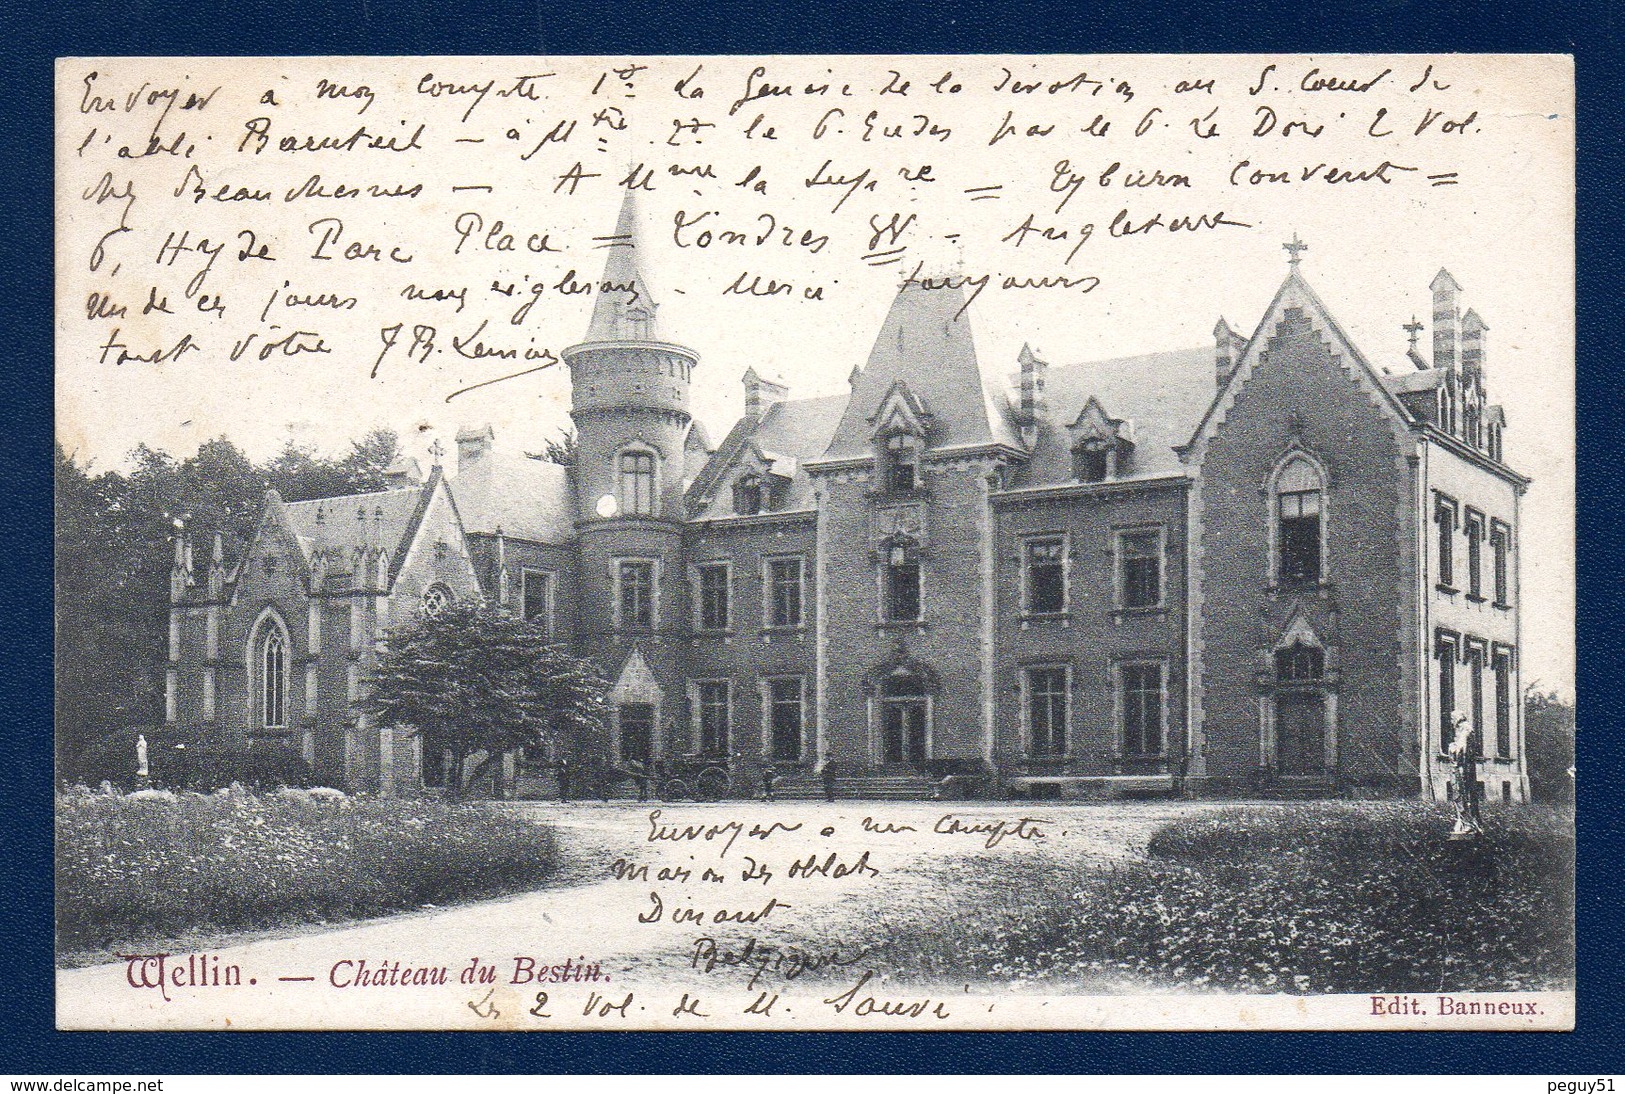 Envoyer à mon compte 1º La Genèse de la dévotion au S. Coeur de
l'abbé Baruteil — à M 2º le P. Eudes par le P. Le Doré 2 Vol.
chez Beauchesnes — A Mme la Supre = Tyburn Convent =
6, Hyde Parc Place = Londres W - Angleterre
Un de ces jours nous réglerons - Merci toujours
tout vôtre J B. Lemius
Envoyer à mon compte.
maison des oblats
Dinant
Belgique
Les 2 Vol. de M. Sauvé
Wellin. — Château du Bestin.
Edit. Banneux.
www.delcampe.net
peguy51